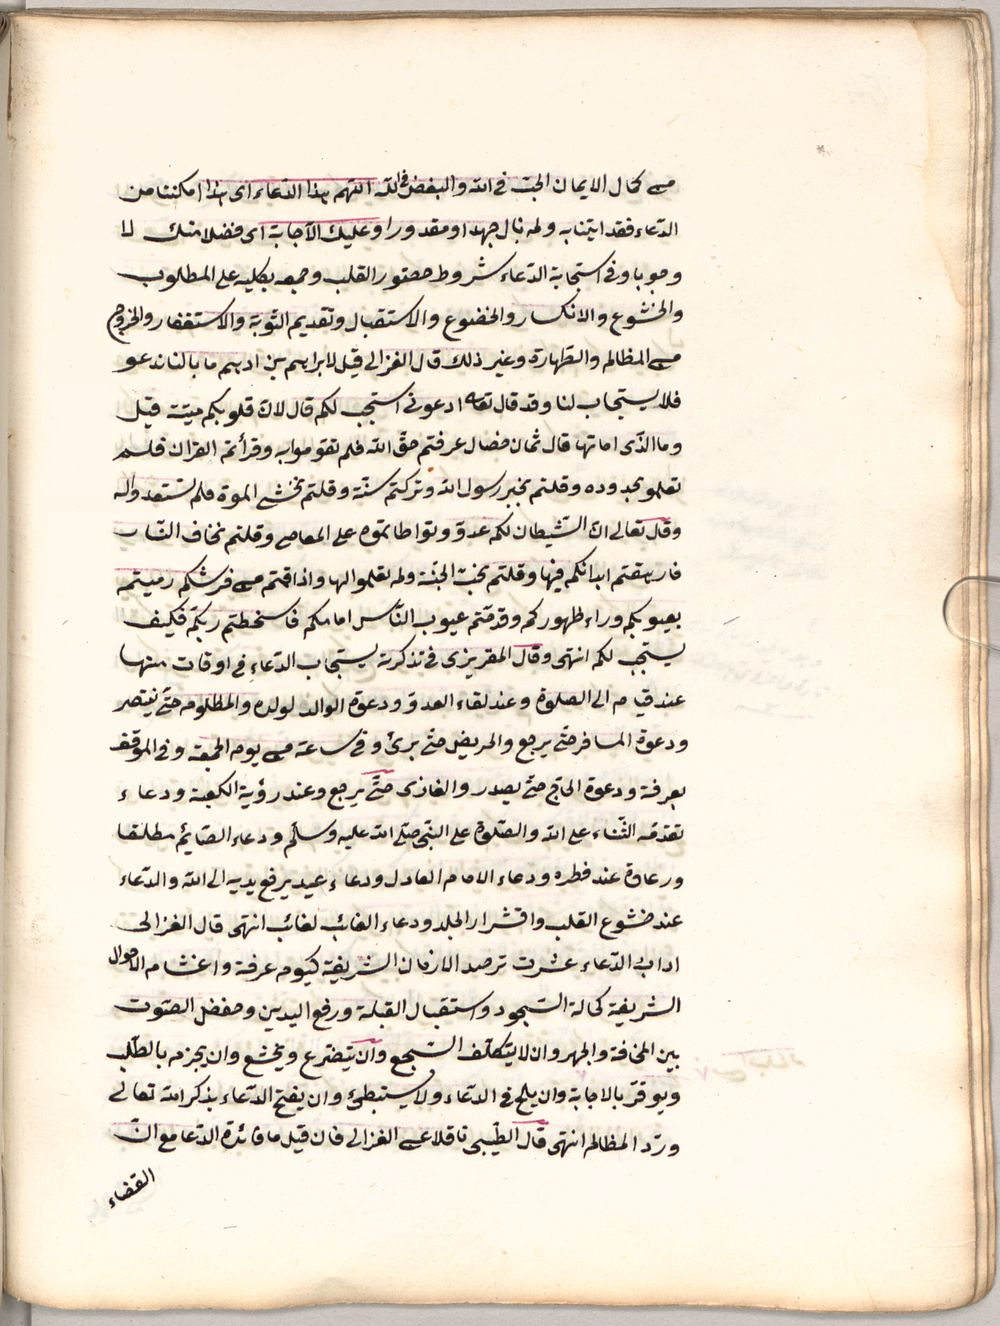 من كمال الايمان الحبّ فى الله والبغض فى الله اللّهم هذا الدّعاء اى هذا امكننا من
الدّعاء فقد اتينا به ولم نال جهدا ومقدورا وعليك الاجابة اى فضلا منك لا
وجوبا وفى استجابة الدّعاء شروط حضور القلب وجمعه بكليه على المطلوب
والخشوع والانكسار والخضوع والاستقبال وتقديم التّوبة والاستغفار والخروج
من المظالم والطّهارة وغير ذلك قال الغزالى قيل لابراهيم بن ادهم ما بالنا ندعو
فلا يستجاب لنا وقد قال تعه ادعونى استجب لكم قال لانّ قلوبكم ميتة قيل
وما الّذى اماتها قال ثمان خصال عرفتم حقّ الله فلم تقوموا به وقرأتم القران فلم
تعلمو بحدوده وقلتم بخبر رسول الله وتركتم سنّته وقلتم نخشى الموة فلم تستعدوا له
وقال تعالى انّ الشّيطان لكم عدوّ وتواطأتموه على المعاصى وقلتم نخاف النّار
فارهقتم ابدانكم فيها وقلتم نحبّ الجنّة ولم تعلموا لها واذا قمتم من فرشكم رميتم
بعيوبكم وراء ظهوركم وقدمّتم عيوب النّاس امامكم فاسخطتم ربّكم فكيف
يستجب لكم انتهى وقال المقريزى فى تذكرته يستجاب الدّعاء فى اوقات منها
عند قيام الى الصلوة وعند لقاء العدوّ ودعوة الوالد لولده والمظلوم حتّى ينتصر
ودعوة المسافر حتّى يرجع والمريض حتّى برئ وفى ساعة من يوم الجمعة وفى الموقف
بعرفة ودعوة الحاج حتّى يصدر والغازى حتّى يرجع وعند رؤية الكعبة ودعاء
تقدّمه الثّناء على الله والصّلوة على النّبى صلّى الله عليه وسلّم ودعاء الصّايم مطلقا
ودعاؤه عند فطره ودعاء الامام العادل ودعاء عبد يرفع يديه الى الله والدّعاء
عند خشوع القلب واقشرار الجلد ودعاء الغائب لغائب انتهى قال الغزالى
اداب الدّعاء عشرة ترصد الازمان الشّريفة كيوم عرفة واغتنام الاحوال
الشّريفة كحالة السّجود واستقبال القبلة ورفع اليدين وخفض الصّوت
بين المخافة والجهر وان لا يتكلّف السّجع وان يتضرّع ويخشع وان يجزم بالطّلب
ويوقرّ بالاجابة وان يلح فى الدّعاء ولا يستبطئ وان يفتح الدّعاء بذكر الله تعالى
وردّ المظالم انتهى قال الطّيبى ناقلا عن الغزالى فان قيل ما فائدة الدّعا مع انّ
القضاء